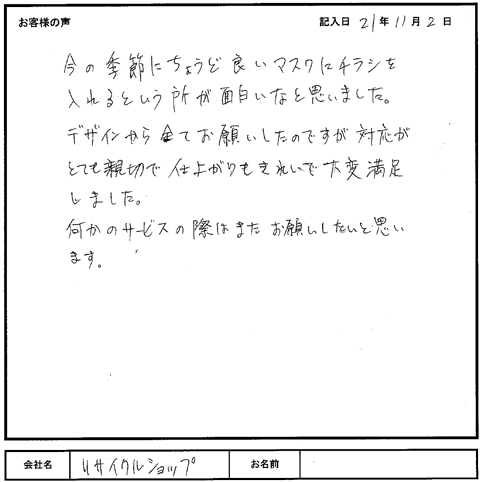 お客様の声
記入日 21年11月2日
今の季節にちょうど良いマスクにチラシを
入れるという所が面白いなと思いました。
デザインから全てお願いしたのですが対応が
とても親切で仕上がりもきれいで大変満足
しました。
何かのサービスの際はまたお願いしたいと思い
ます。
会社名 リサイクルショップ お名前